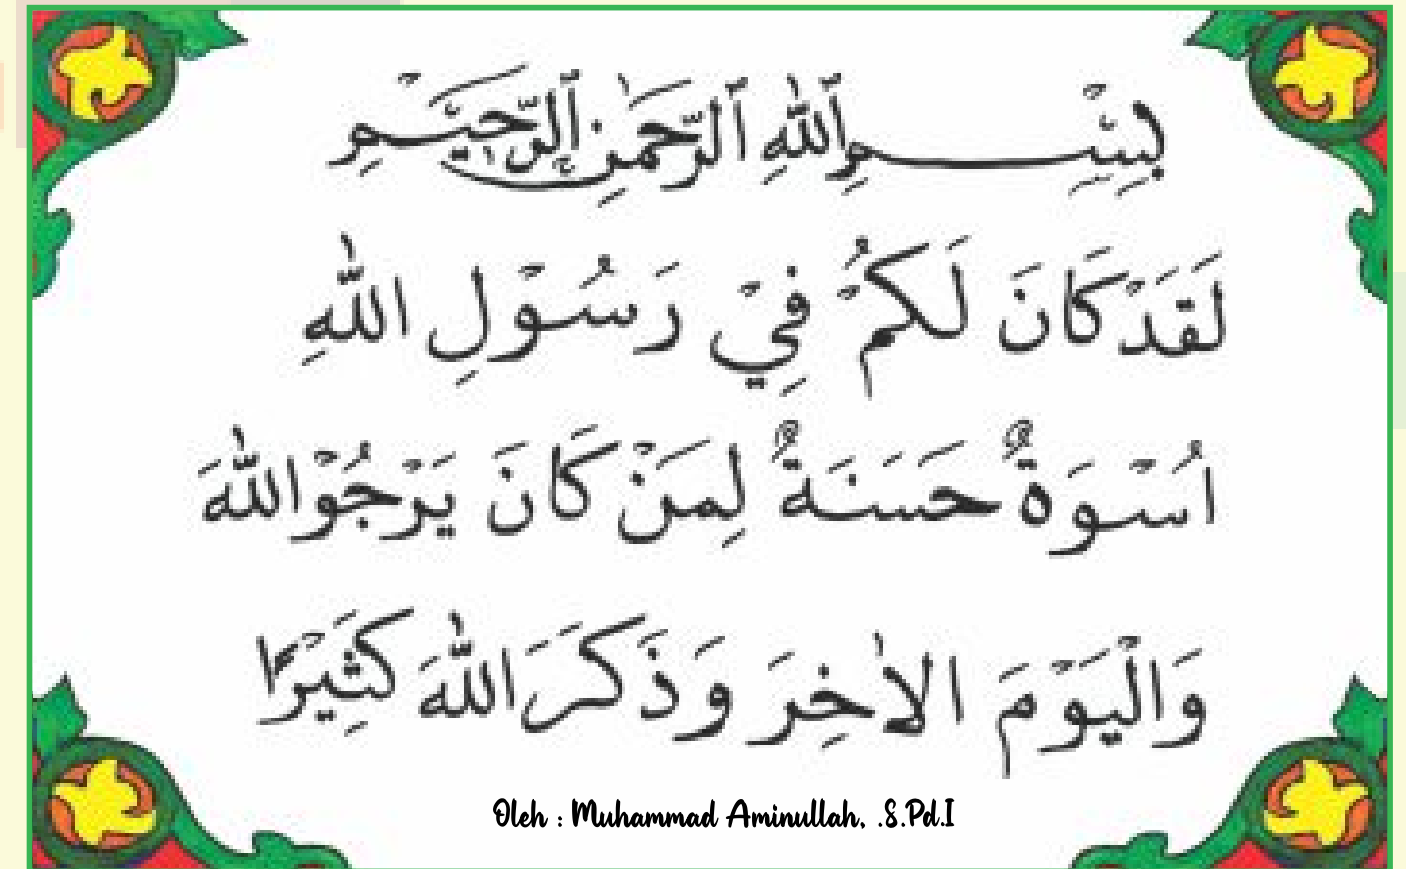 بِسْمِ ٱللَّهِ ٱلرَّحْمَٰنِ ٱلرَّحِيمِ
لَقَدْ كَانَ لَكُمْ فِيْ رَسُوْلِ اللّٰهِ
اُسْوَةٌ حَسَنَةٌ لِمَنْ كَانَ يَرْجُوْا اللّٰهَ
وَالْيَوْمَ الْاٰخِرَ وَذَكَرَ اللّٰهَ كَثِيْرًا
Oleh : Muhammad Aminullah, .S.Pd.I